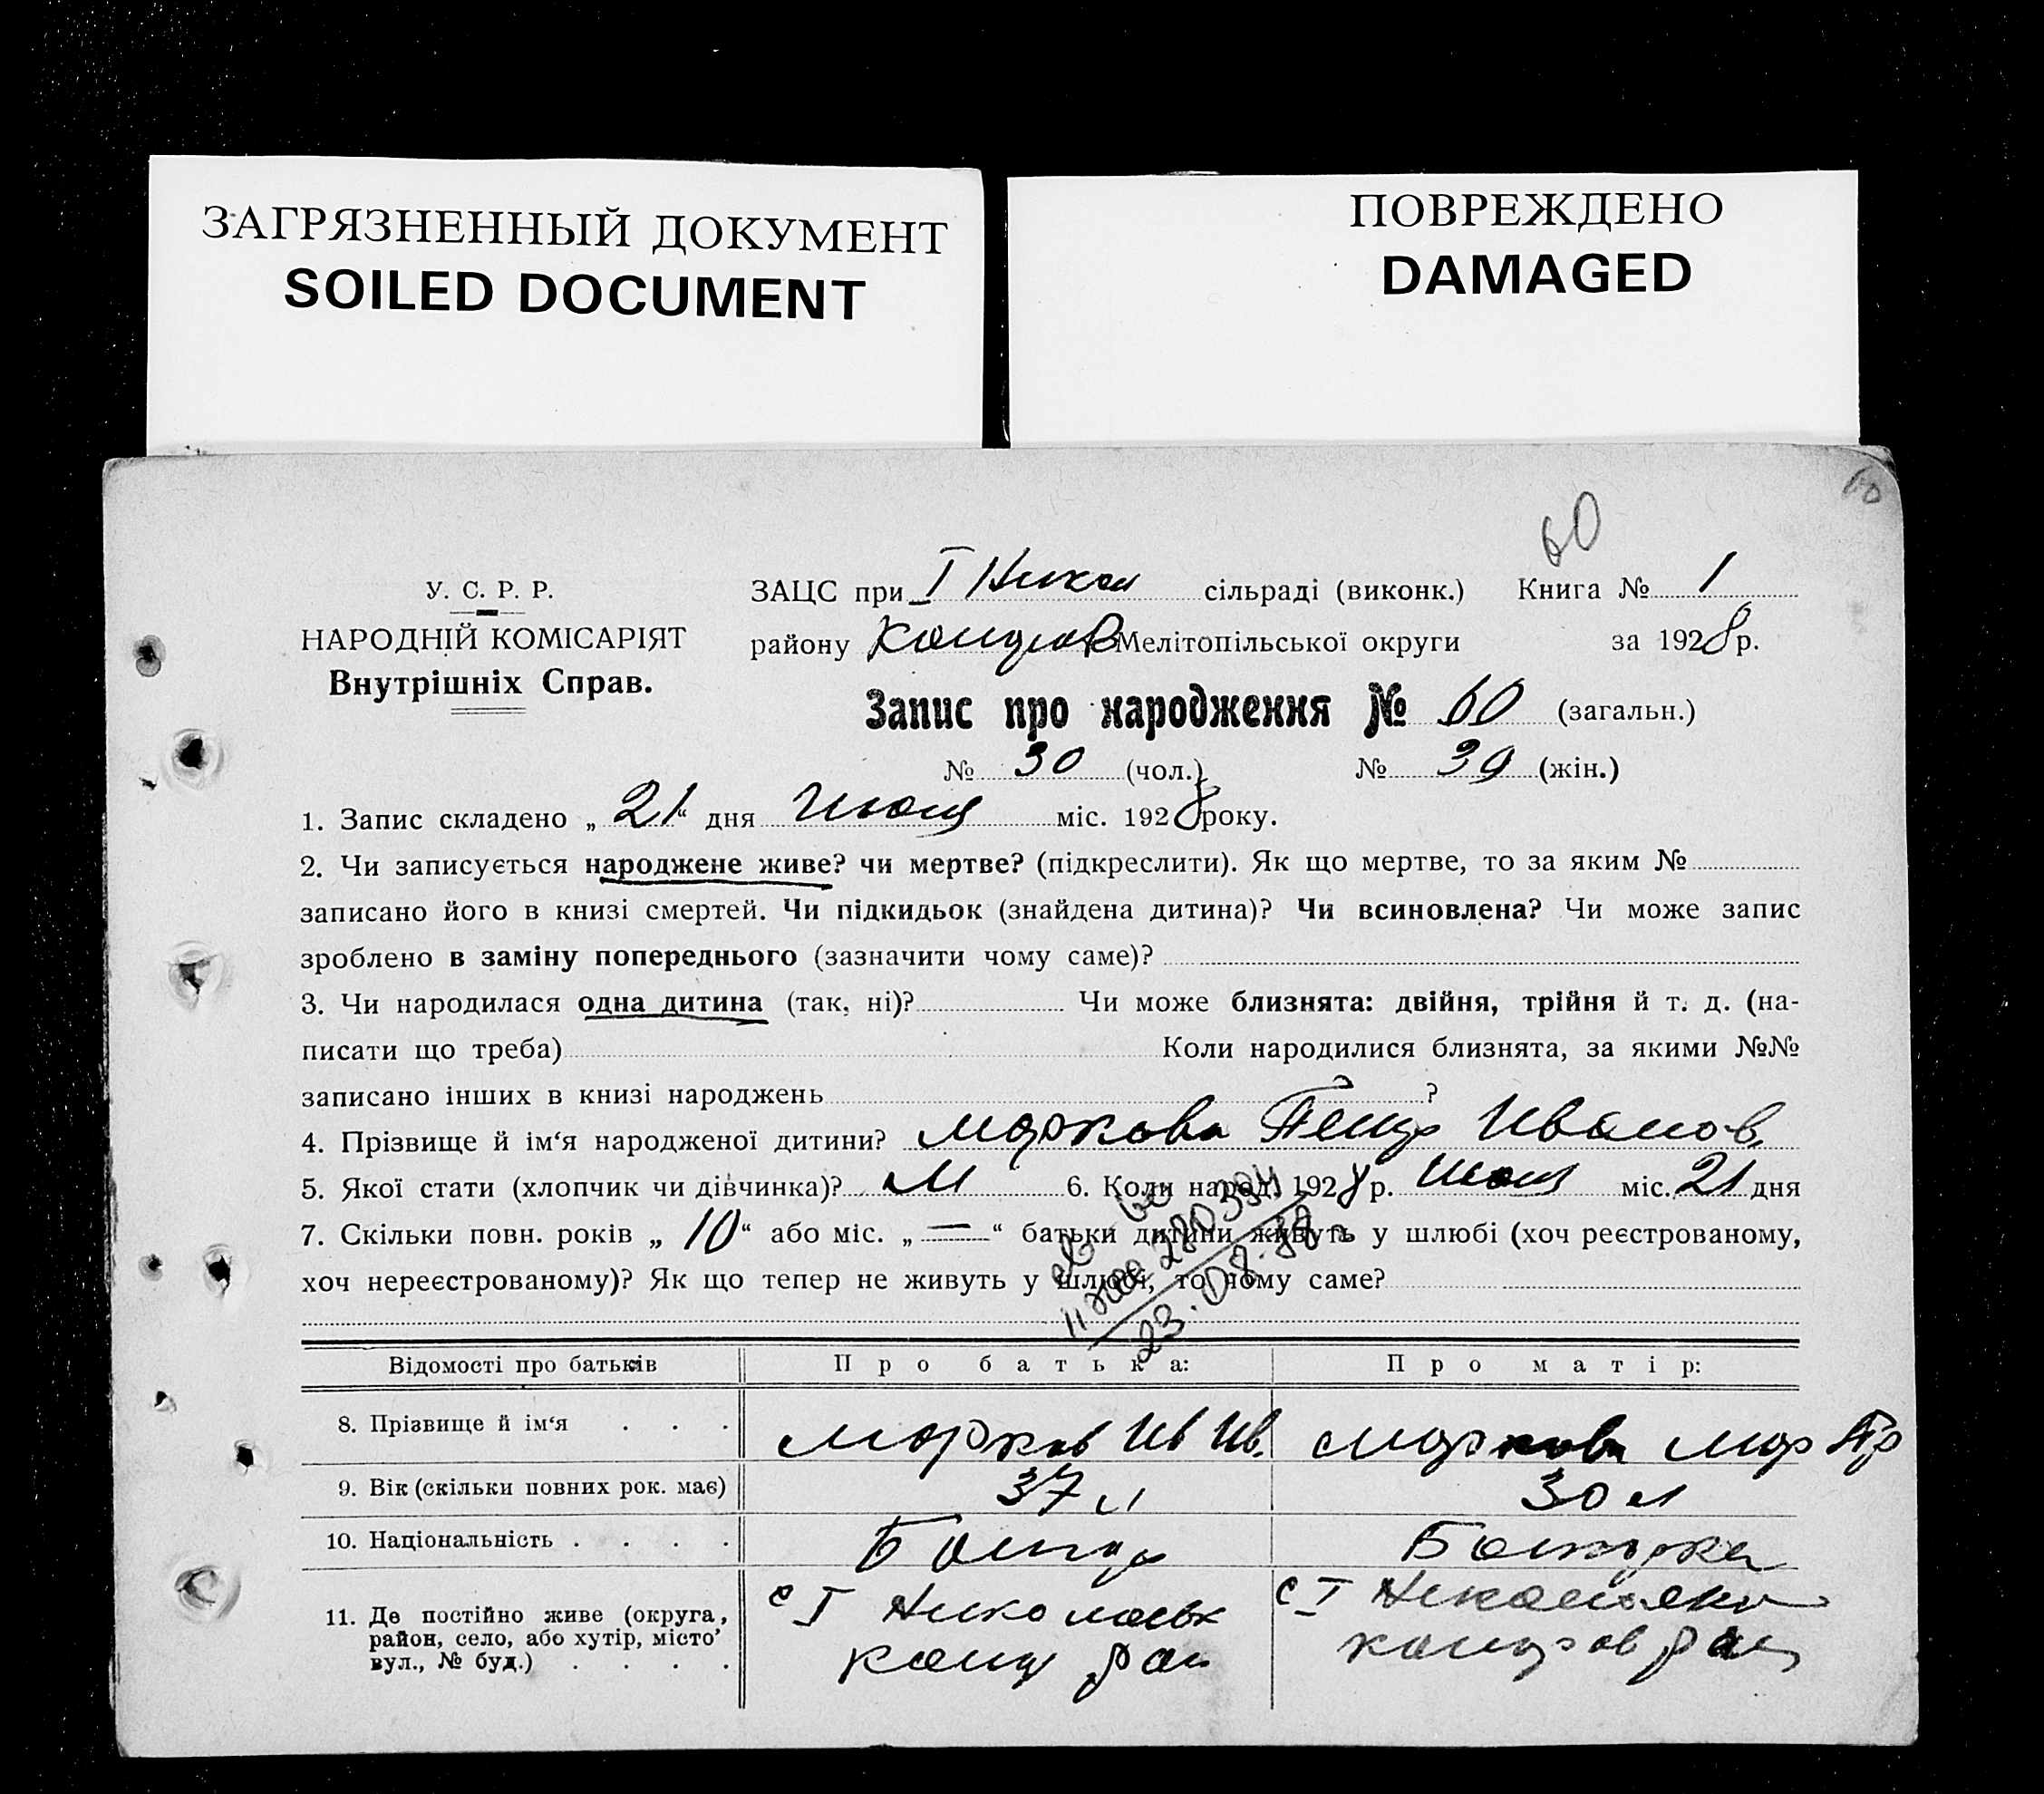 ЗАГРЯЗНЕННЫЙ ДОКУМЕНТ
SOILED DOCUMENT
ПОВРЕЖДЕНО
DAMAGED
60
60
У. С. Р. Р.
НАРОДНІЙ КОМІСАРІЯТ
Внутрішніх Справ.
ЗАЦС при I Никол сільраді (виконк.) Книга № 1
району Мелітопільської округи за 1928 р.
Запис про народження № 60 (загальн.)
№ 30 (чол.) № 30 (жін.)
1. Запис складено „ 21 “ дня Июля міс. 1928 року.
2. Чи записується народжене живе? чи мертве? (підкреслити). Як що мертве, то за яким №
записано його в книзі смертей. Чи підкидьок (знайдена дитина)? Чи всиновлена? Чи може запис
зроблено в заміну попереднього (зазначити чому саме)?
3. Чи народилася одна дитина (так, ні)? Чи може близнята: двійня, трійня й т. д. (на-
писати що треба) Коли народилися близнята, за якими №№
записано інших в книзі народжень ?
4. Прізвище й ім‘я народженої дитини? Маркова Иванов
5. Якої стати (хлопчик чи дівчинка)? М 6. Коли народ. 1928 р. Июля міс. 21 дня
7. Скільки повн. років „ 10 “ або міс. „ — “ батьки дитини живуть у шлюбі (хоч реєстрованому,
хоч нереєстрованому)? Як що тепер не живуть у шлюбі, то чому саме?
280384
23.08.88
Відомості про батьків Про батька: Про матір:
8. Прізвище й ім‘я . . . Марков Ив Ив. Маркова Мар Пр
9. Вік (скільки повних рок. має) 37 л 30 л
10. Національність . . . . Болгар Болгарка
11. Де постійно живе (округа, район, село, або хутір, місто’ вул., № буд.) . . . . с I рай с I рай